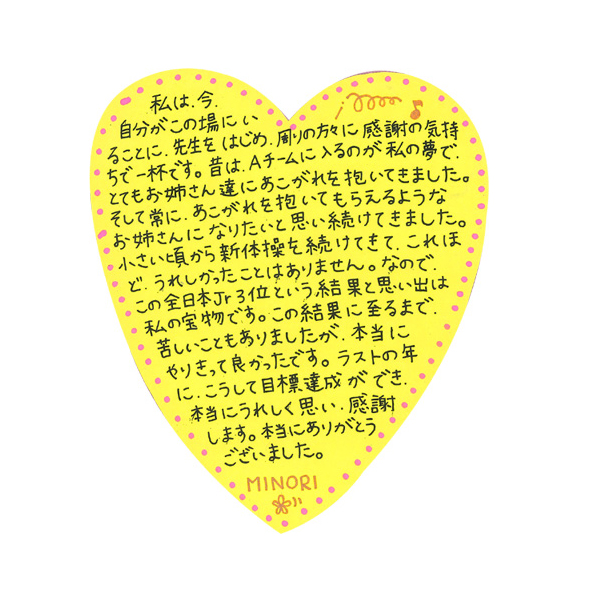 私は、今、
自分がこの場にい
ることに、先生をはじめ、周りの方々に感謝の気持
ちで一杯です。昔は、Aチームに入るのが私の夢で、
とてもお姉さん達にあこがれを抱いてきました。
そして常に、あこがれを抱いてもらえるような
お姉さんになりたいと思い続けてきました。
小さい頃から新体操を続けてきて、これほ
ど、うれしかったことはありません。なので、
この全日本Jr3位という結果と思い出は
私の宝物です。この結果に至るまで、
苦しいこともありましたが、本当に
やりきって良かったです。ラストの年
に、こうして目標達成ができ、
本当にうれしく思い、感謝
します。本当にありがとう
ございました。
MINORI